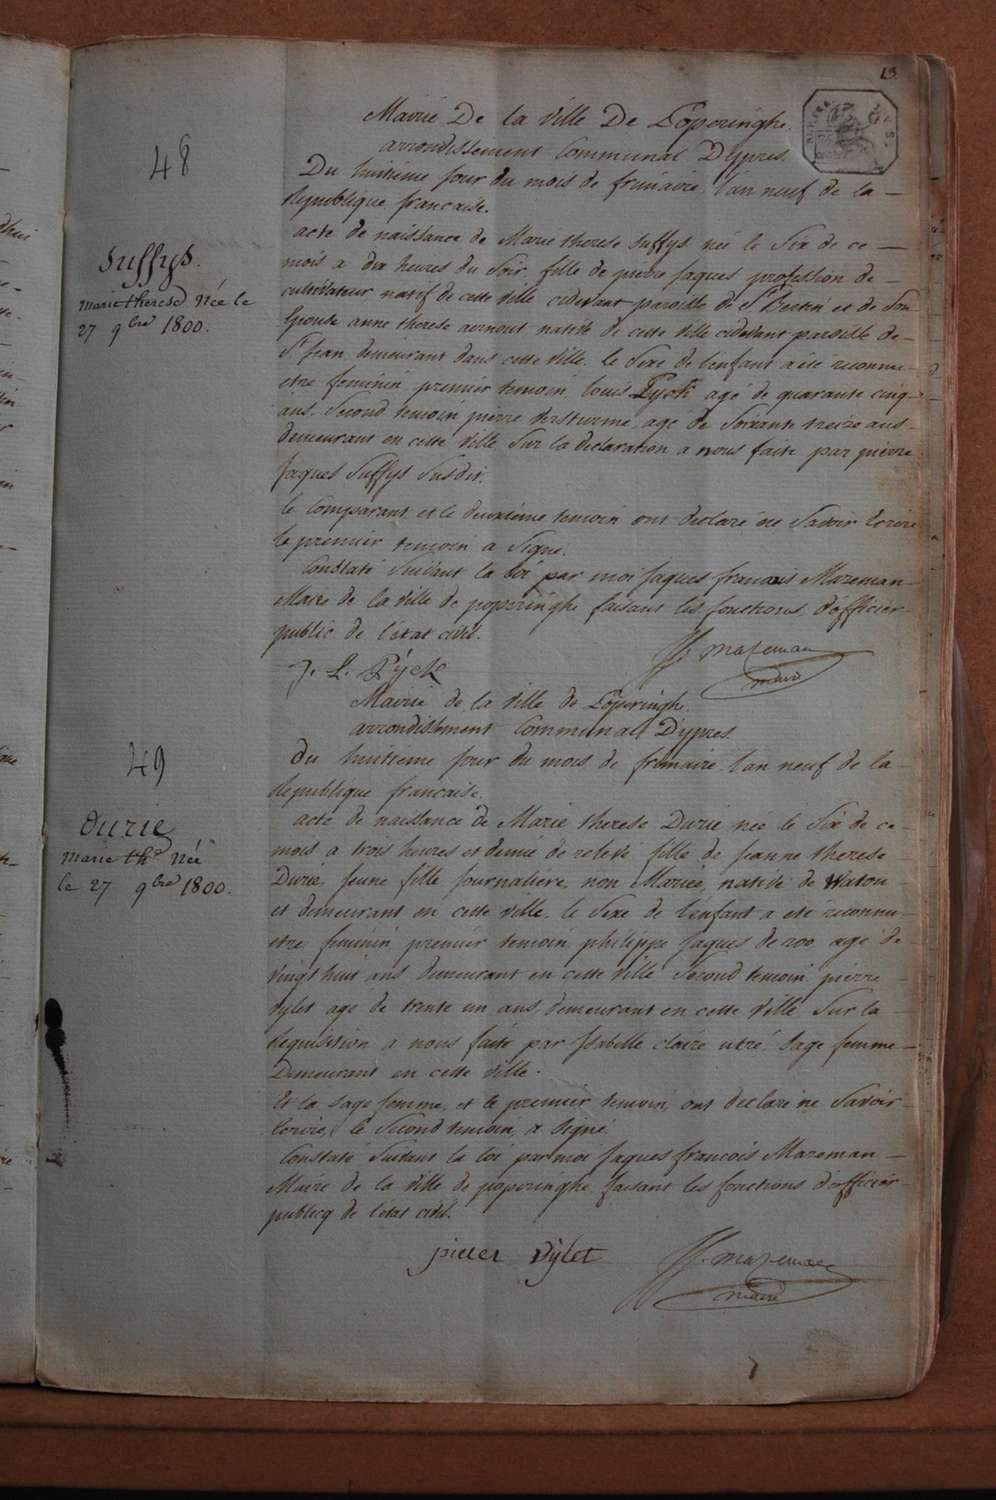 13
Mairie De la Ville De Poperinghe.
arrondissement Communal Dypres.
48
Du huitieme jour du mois de frimaire l'an neuf de la
Republique francaise.
Suffys.
marie therese Née le
27 9bre 1800.
acte de naissance de Marie therese Suffys née le Six de ce
mois a dix heures du Soir, fille de pierre jaques profession de
cultivateur natif de cette ville cidevant paroisse de St Bertin et de Son
Epouse anne therese aernout native de cette ville cidevant paroisse de
St Jean demeurant dans cette ville. le Sexe de l'enfant a été reconnu
etre feminin premier temoin louis Pyck agé de quarante cinq
ans, Second temoin pierre agé de Soixante treize ans
demeurant en cette ville Sur la declaration a nous faite par pierre
Jaques Suffys Susdit.
le Comparant et le deuxième temoin ont declaré ne Savoir Ecrire
le premier temoin a Signé.
Constaté Suivant la loi par moi jaques francois Mazeman
Maire de la ville de poperinghe faisant les fonctions d'officier
public de l'état civil.
J. L. Pÿck
J. f. mazeman
maire
Mairie de la Ville de Poperinghe.
arrondissement Communal Dypres
49
Du huitieme jour du mois de frimaire l'an neuf de la
Republique francaise.
Durie
marie the Née
le 27 9bre 1800.
acte de naissance de Marie therese Durie née le Six de ce
mois a trois heures et demie de relevé fille de jeanne therese
Durie, jeune fille journaliere, non Mariée, native de Watou
et demeurant en cette ville, le Sexe de l'enfant a eté reconnu
etre feminin premier temoin philippe jaques de roo agé de
vingt huit ans demeurant en cette ville Second temoin pierre
vylet age de trente un ans, demeurant en cette ville Sur la
requisition a nous faite par Isabelle claire Sage femme
Demeurant en cette ville.
Et la Sage femme, et le premier temoin, ont declaré ne Savoir
Ecrire, le Second temoin a Signé
Constaté Suivant la loi par moi Jaques francois Mazeman
Maire de la ville de poperinghe faisant les fonctions d'officier
publicq de l'état civil.
pieter Vÿlet
J. f. mazeman
maire